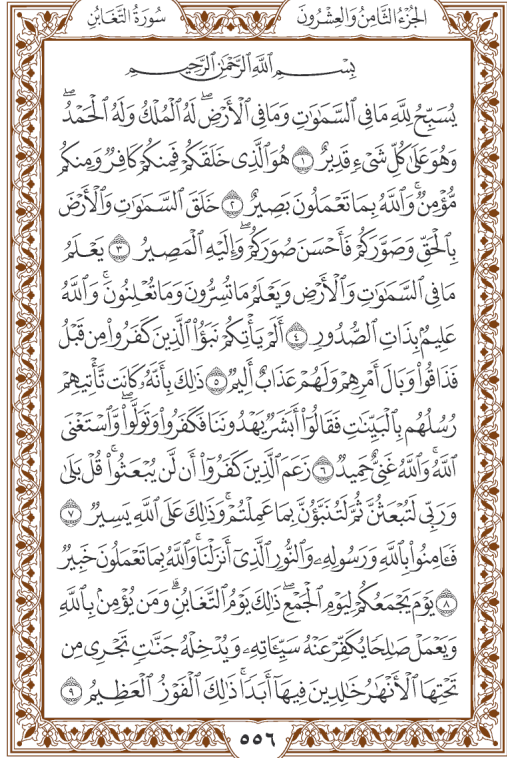 الجُزْءُ الثَّامِنُ وَالعِشْرُونَ
سُورَةُ التَّغَابُنِ
بِسْمِ اللَّهِ الرَّحْمَٰنِ الرَّحِيمِ
يُسَبِّحُ لِلَّهِ مَا فِي السَّمَٰوَٰتِ وَمَا فِي الْأَرْضِ ۖ لَهُ الْمُلْكُ وَلَهُ الْحَمْدُ ۖ
وَهُوَ عَلَىٰ كُلِّ شَيْءٍ قَدِيرٌ ١ هُوَ الَّذِي خَلَقَكُمْ فَمِنكُمْ كَافِرٌ وَمِنكُم
مُّؤْمِنٌ ۚ وَاللَّهُ بِمَا تَعْمَلُونَ بَصِيرٌ ٢ خَلَقَ السَّمَٰوَٰتِ وَالْأَرْضَ
بِالْحَقِّ وَصَوَّرَكُمْ فَأَحْسَنَ صُوَرَكُمْ ۖ وَإِلَيْهِ الْمَصِيرُ ٣ يَعْلَمُ
مَا فِي السَّمَٰوَٰتِ وَالْأَرْضِ وَيَعْلَمُ مَا تُسِرُّونَ وَمَا تُعْلِنُونَ ۚ وَاللَّهُ
عَلِيمٌ بِذَاتِ الصُّدُورِ ٤ أَلَمْ يَأْتِكُمْ نَبَؤُاْ الَّذِينَ كَفَرُواْ مِن قَبْلُ
فَذَاقُواْ وَبَالَ أَمْرِهِمْ وَلَهُمْ عَذَابٌ أَلِيمٌ ٥ ذَٰلِكَ بِأَنَّهُ كَانَت تَّأْتِيهِمْ
رُسُلُهُم بِالْبَيِّنَٰتِ فَقَالُوٓاْ أَبَشَرٌ يَهْدُونَنَا فَكَفَرُواْ وَتَوَلَّواْ ۚ وَّاسْتَغْنَى
اللَّهُ ۚ وَاللَّهُ غَنِيٌّ حَمِيدٌ ٦ زَعَمَ الَّذِينَ كَفَرُوٓاْ أَن لَّن يُبْعَثُواْ ۚ قُلْ بَلَىٰ
وَرَبِّي لَتُبْعَثُنَّ ثُمَّ لَتُنَبَّؤُنَّ بِمَا عَمِلْتُمْ ۚ وَذَٰلِكَ عَلَى اللَّهِ يَسِيرٌ ٧
فَـَٔامِنُواْ بِاللَّهِ وَرَسُولِهِۦ وَالنُّورِ الَّذِيٓ أَنزَلْنَا ۚ وَاللَّهُ بِمَا تَعْمَلُونَ خَبِيرٌ
٨ يَوْمَ يَجْمَعُكُمْ لِيَوْمِ الْجَمْعِ ۖ ذَٰلِكَ يَوْمُ التَّغَابُنِ ۗ وَمَن يُؤْمِنۢ بِاللَّهِ
وَيَعْمَلْ صَٰلِحًا يُكَفِّرْ عَنْهُ سَيِّـَٔاتِهِۦ وَيُدْخِلْهُ جَنَّٰتٍ تَجْرِي مِن
تَحْتِهَا الْأَنْهَٰرُ خَٰلِدِينَ فِيهَآ أَبَدًا ۚ ذَٰلِكَ الْفَوْزُ الْعَظِيمُ ٩
٥٥٦